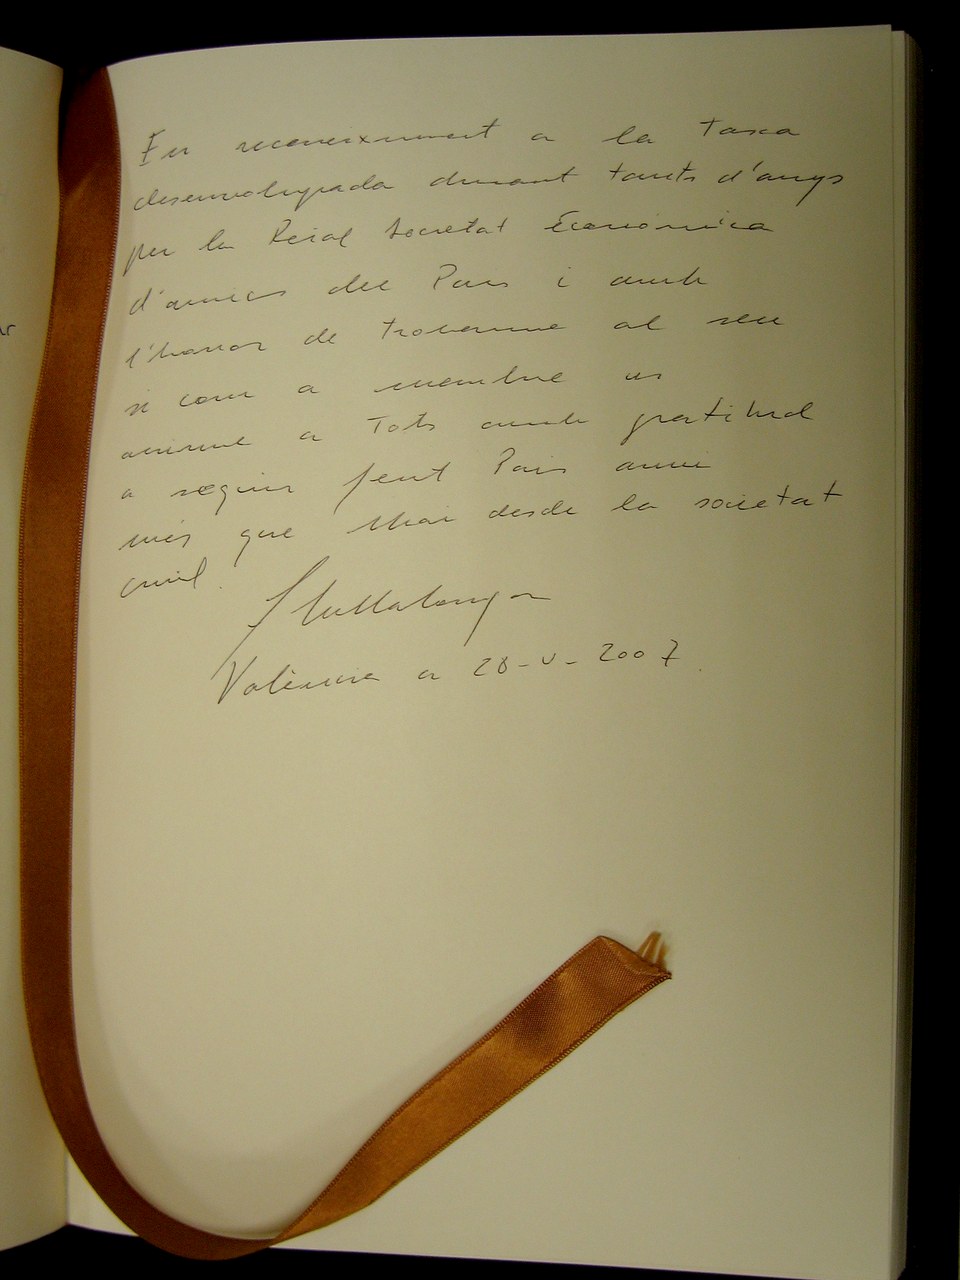 En reconeixement a la Tasca
desenvolupada durant tants d'anys
per la Reial Societat Econòmica
d'amics del Pais i amb
l'honor de trobarme al seu
si com a membre us
anime a Tots amb gratitud
a seguir fent Pais ami
més que mai desde la societat
civil.
València a 28-V-2007.